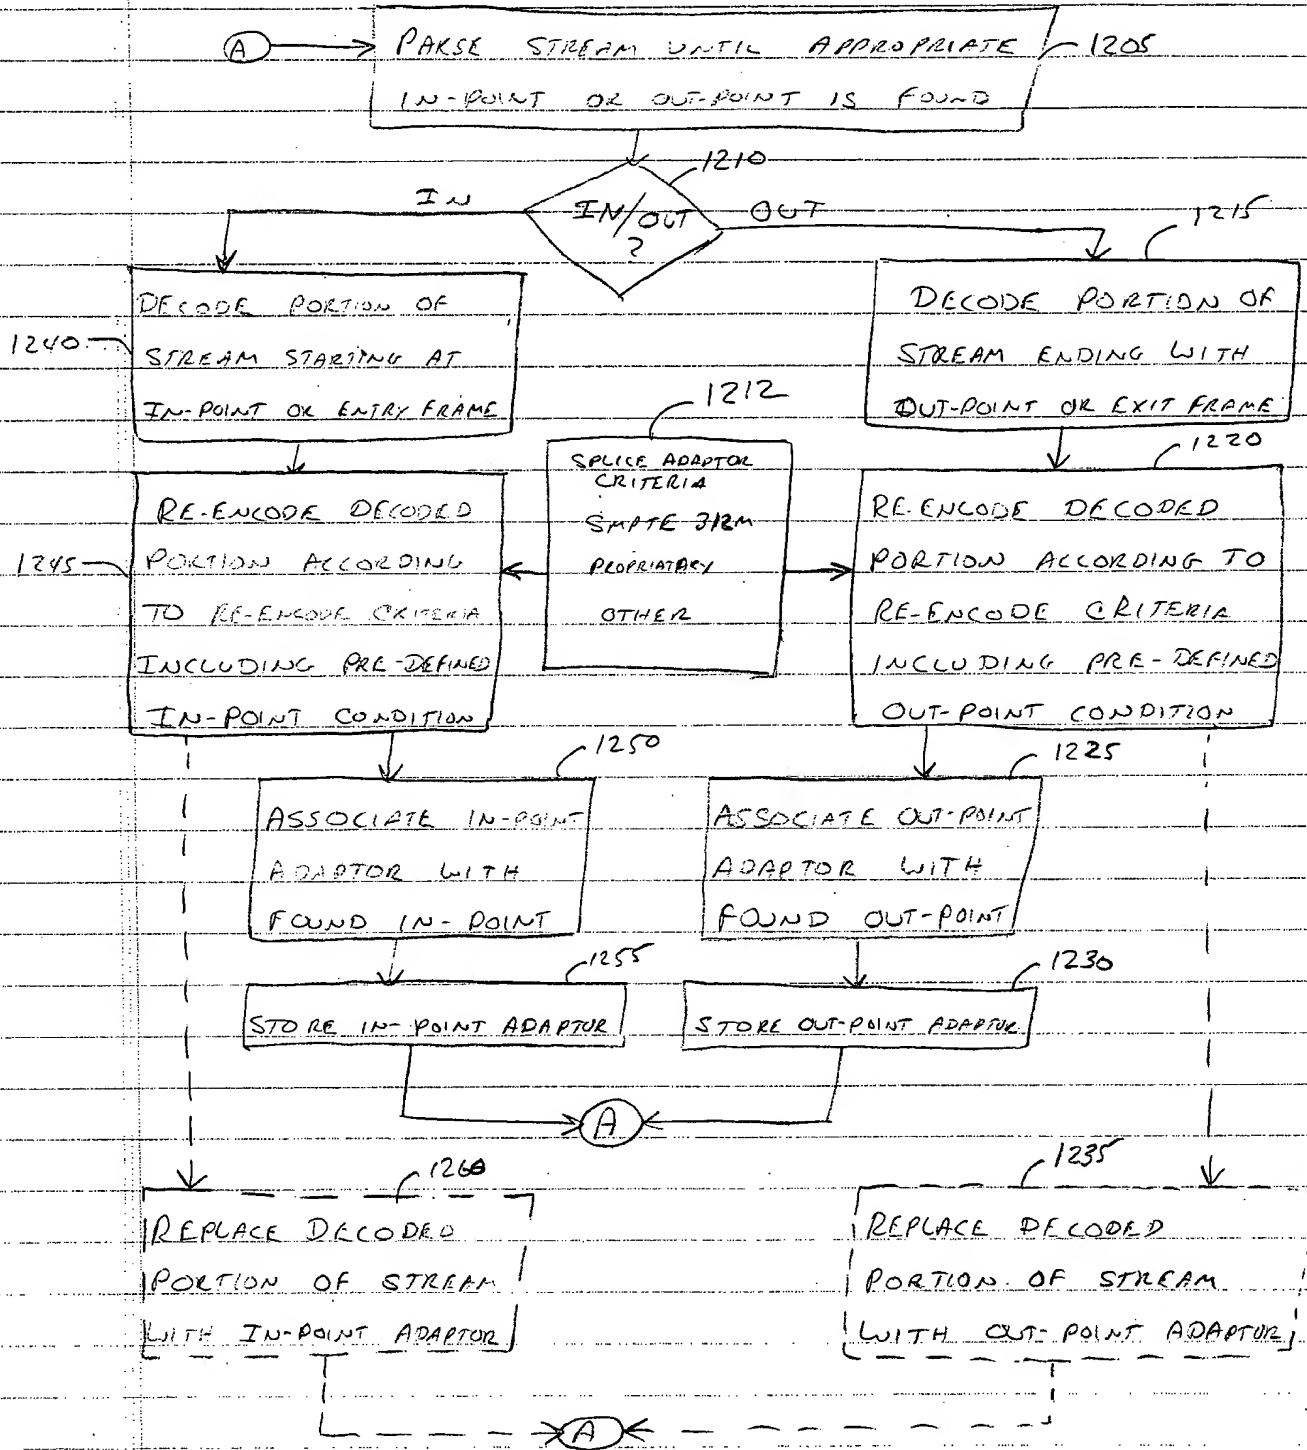 A
PARSE STREAM UNTIL APPROPRIATE
IN-POINT OR OUT-POINT IS FOUND
1205
1210
IN/OUT
?
IN
OUT
1215
DECODE PORTION OF
STREAM STARTING AT
IN-POINT OR ENTRY FRAME
1240
DECODE PORTION OF
STREAM ENDING WITH
OUT-POINT OR EXIT FRAME
1212
SPLICE ADAPTOR
CRITERIA
SMPTE 312M
PROPRIATARY
OTHER
1220
RE-ENCODE DECODED
PORTION ACCORDING
TO RE-ENCODE CRITERIA
INCLUDING PRE-DEFINED
IN-POINT CONDITION
1245
RE-ENCODE DECODED
PORTION ACCORDING TO
RE-ENCODE CRITERIA
INCLUDING PRE-DEFINED
OUT-POINT CONDITION
1250
ASSOCIATE IN-POINT
ADAPTOR WITH
FOUND IN-POINT
1225
ASSOCIATE OUT-POINT
ADAPTOR WITH
FOUND OUT-POINT
1255
STORE IN-POINT ADAPTOR
1230
STORE OUT-POINT ADAPTOR
A
1260
REPLACE DECODED
PORTION OF STREAM
WITH IN-POINT ADAPTOR
1235
REPLACE DECODED
PORTION OF STREAM
WITH OUT-POINT ADAPTOR
A